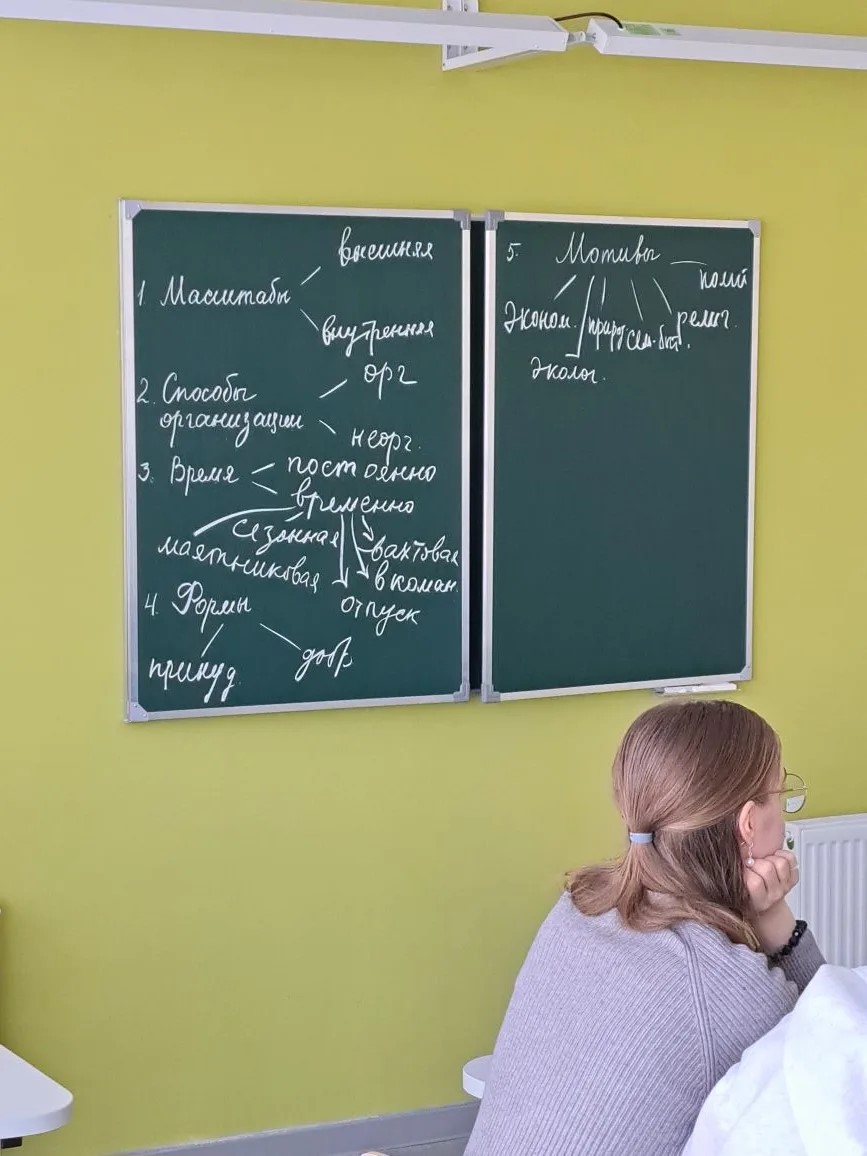 внешняя
1. Масштабы
внутренняя
орг
2. Способы
организации
неорг.
3. Время
постоянно
временно
сезонная
маятниковая
вахтовая
в коман.
отпуск
4. Формы
принуд.
добр.
5. Мотивы
полит
эконом.
природ
сем.-быт.
религ.
эколог.